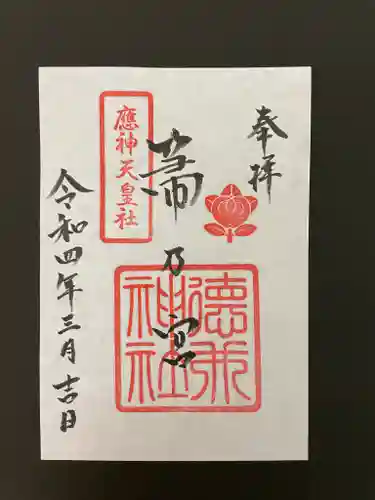 奉拝
乃宮
應神天皇社
令和四年三月吉日
德
神社